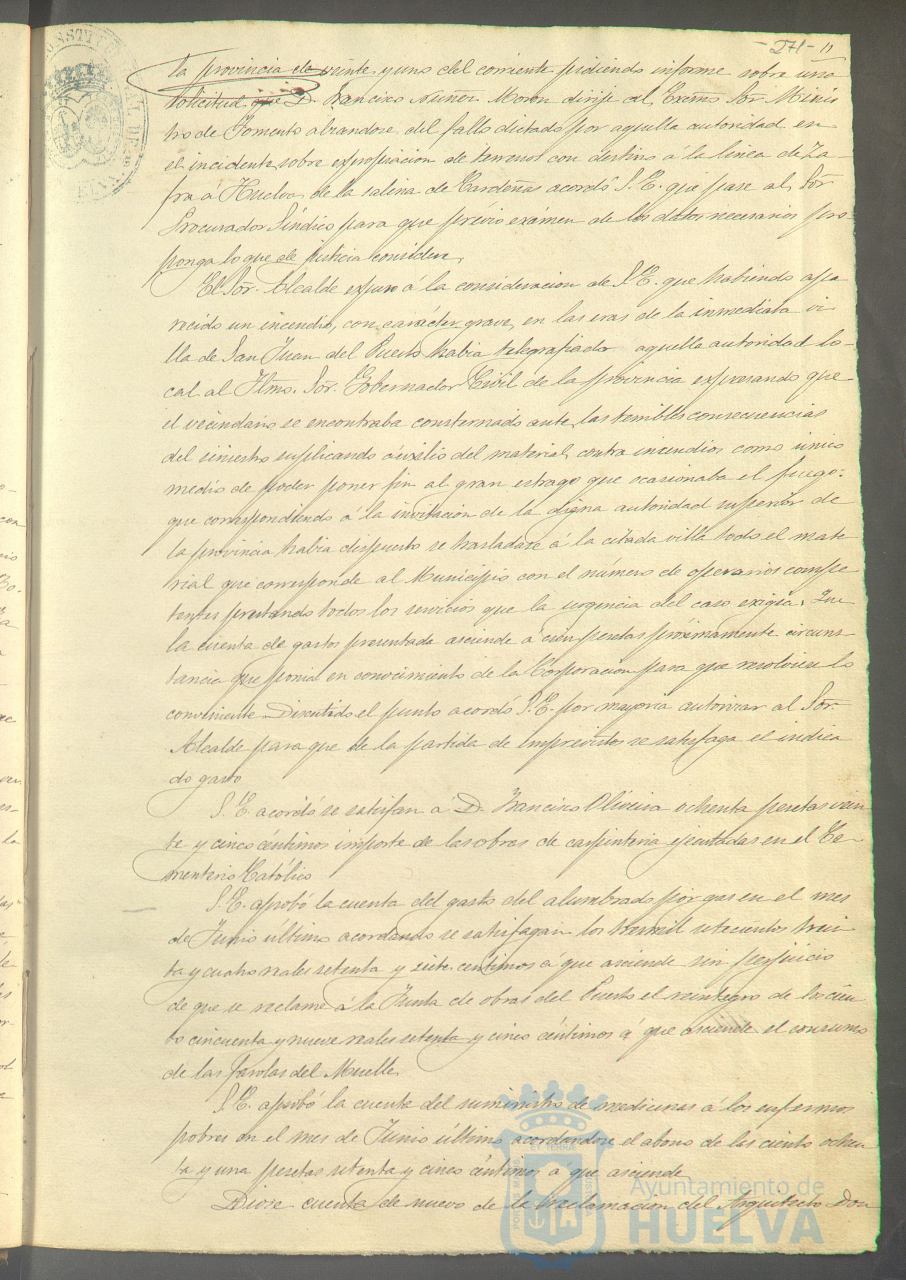 -271- 11
la provincia de veinte y uno del corriente pidiendo informe sobre una
solicitud que D. Francisco Nuñez Moron dirije al Excmo Sor. Minis
tro de Fomento alzandose del fallo dictado por aquella autoridad en
el incidente sobre expropiacion de terrenos con destino á la linea de Za-
fra á Huelva de la salina de Cardeñas acordó S.E. que pase al Sor.
Procurador Síndico para que previo exámen de los datos necesarios pro-
ponga lo que de justicia considere.
El Sor. Alcalde expuso á la consideracion de S.E. que habiendo apa
recido un incendio, con carácter grave, en las eras de la inmediata vi
lla de San Juan del Puerto habia telegrafiado aquella autoridad lo-
cal al Iltmo. Sor. Gobernador Civil de la provincia expresando que
el vecindario se encontraba consternado ante las temibles consecuencias
del siniestro suplicando aucsilio del material contra incendios como único
medio de poder poner fin al gran estrago que ocasionaba el fuego:
que correspondiendo á la invitacion de la digna autoridad superior de
la provincia habia dispuesto se trasladase á la citada villa todo el mate
rial que corresponde al Municipio con el número de operarios compe
tentes prestando todos los servicios que la urgencia del caso exigia. Que
la cuenta de gastos presentada asciende á cien pesetas próximamente circuns
tancia que ponia en conocimiento de la Corporacion para que resolviese lo
conveniente. Discutido el punto acordó S.E. por mayoria autorizar al Sor.
Alcalde para que de la partida de imprevistos se satisfaga el indica
do gasto
S.E. acordó se satisfan á D. Francisco Oliveira ochenta pesetas vein
te y cinco céntimos importe de las obras de carpinteria ejecutadas en el Ce-
menterio Católico
S.E. aprobó la cuenta del gasto del alumbrado por gas en el mes
de Junio último acordando se satisfagan los tres mil setecientos trein
ta y cuatro reales setenta y siete centimos a que asciende sin perjuicio
de que se reclame á la Junta de obras del Puerto el reintegro de los cien
to cincuenta y nueve reales setenta y cinco céntimos á que asciende el consumo
de las farolas del Muelle.
S.E. aprobó la cuenta del suministro de medicinas á los enfermos
pobres en el mes de Junio último acordandose el abono de las ciento ochen
ta y una pesetas setenta y cinco céntimos a que asciende
Diose cuenta de nuevo de la reclamacion del Arquitecto Don
Ayuntamiento de
HUELVA